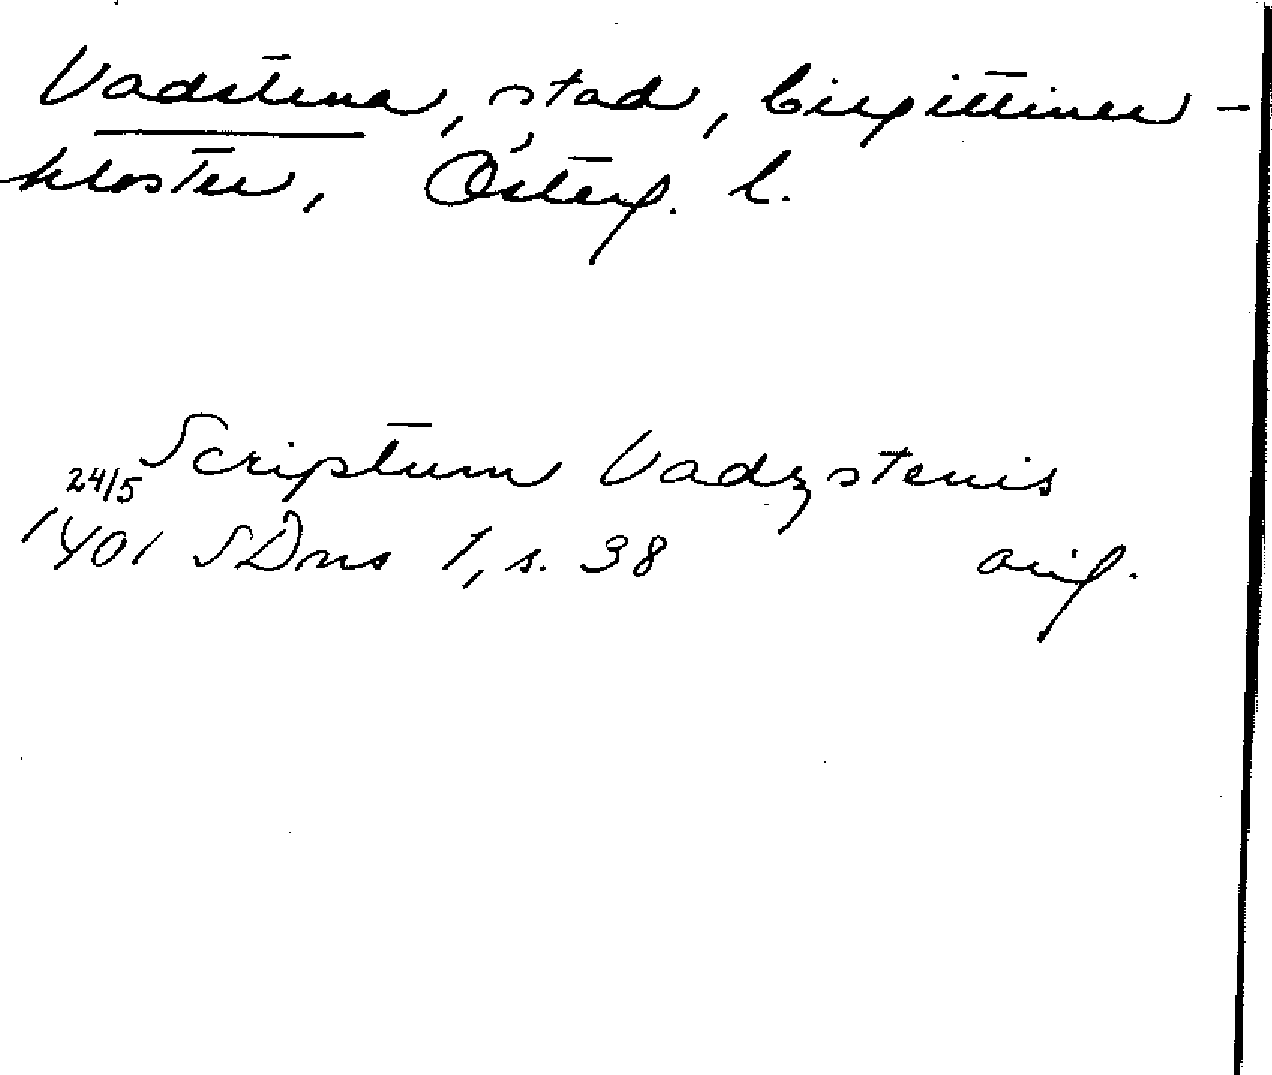 Vadstena, stad, birgittiner-
kloster, Österg. l.
Scriptum Vadzstenis
24/5
1401 SDns 1, s. 38 orig.